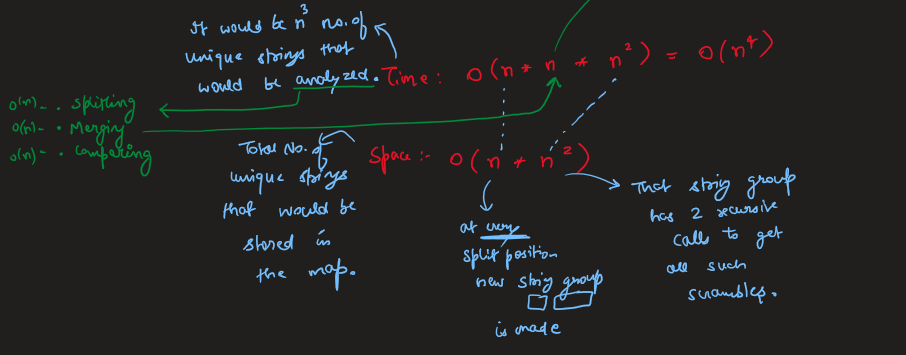 It would be n³ no. of
unique strings that
would be analyzed.
Time: O(n * n * n²) = O(n⁴)
O(n) - . Splitting
O(n) - . Merging
O(n) - . Comparing
Total No. of
unique strings
that would be
stored in
the map.
Space :- O(n * n²)
at every
split position
new string group
is made
That string group
has 2 recursive
calls to get
all such
scrambles.